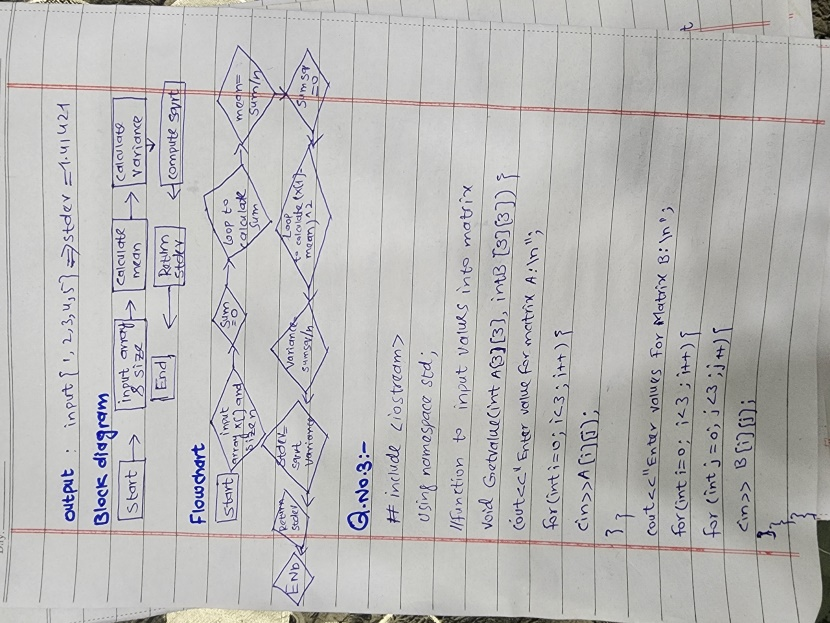 output : input { 1, 2, 3, 4, 5 } => stdev = 1.41421
Block diagram
Start
input array & size
calculate mean
calculate variance
End
Return stdev
compute sqrt
Flowchart
Start
input array x[] and size n
sum =0
Loop to calculate sum
mean= sum/n
END
Return stdev
stdev= sqrt variance
variance sumsq/n
Loop to calculate (x[i]- mean)^2
sumsq =0
Q.No.3:-
# include <iostream>
Using namespace std;
//function to input values into matrix
void Getvalue(int A[3][3], int B[3][3]) {
cout<<"Enter value for matrix A:\n";
for(int i=0; i<3; i++) {
cin>>A[i][j];
} }
cout<<"Enter values for Matrix B:\n";
for(int i=0; i<3; i++) {
for(int j=0; j<3; j++) {
cin>> B[i][j];
} } }